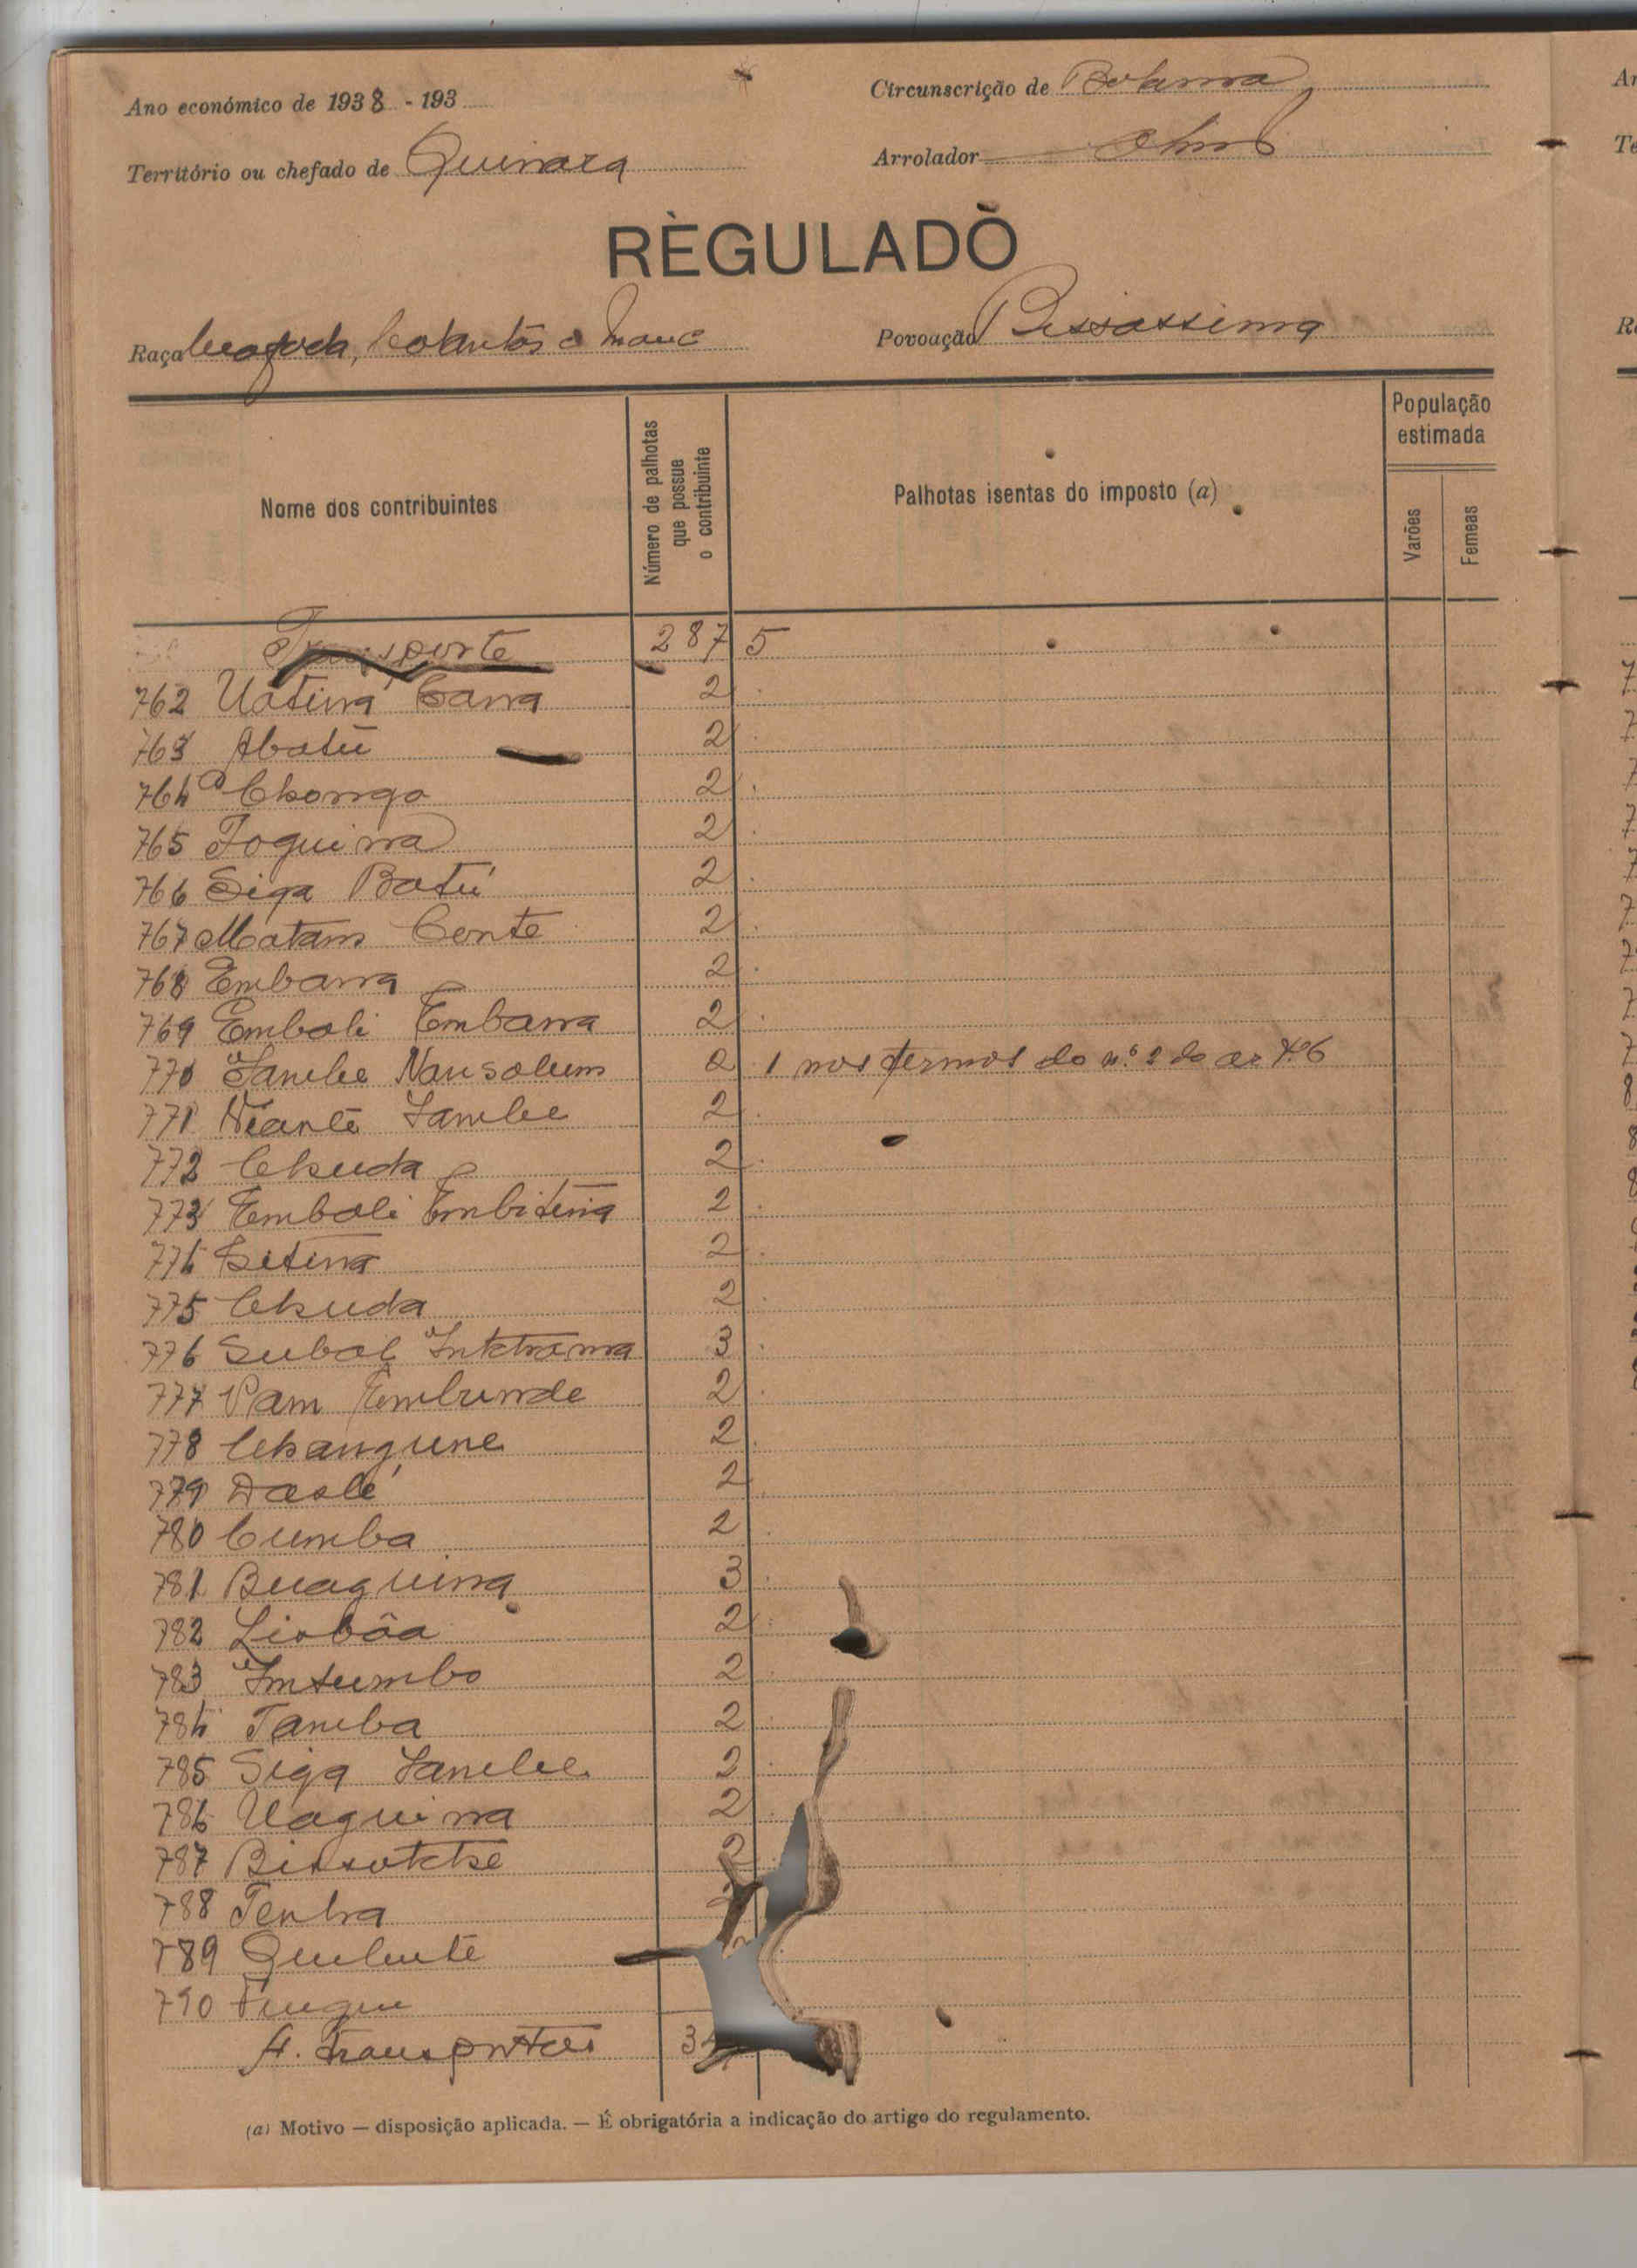 Ano económico de 1938 - 193
Circunscrição de Bolama
Território ou chefado de Quinara
Arrolador
REGULADO
Raça Beafada, Balantas e Manc
Povoação Bissassema
Nome dos contribuintes
Número de palhotas que possue o contribuinte
Palhotas isentas do imposto (a)
População estimada
Varões
Femeas
Transporte 287 5
762 Uatina Cana 2
763 Abatú 2
764 Chongo 2
765 Toquina 2
766 Siga Batú 2
767 Matam Conte 2
768 Embana 2
769 Embali Embana 2
770 Sambe Nansalum 2 1 nos termos do n.º 2 do ar 4º6
771 Sambe 2
772 Chuda 2
773 Embali Embitina 2
774 Bitina 2
775 Chuda 2
776 3
777 Pam Embunde 2
778 Changune 2
779 2
780 Cumba 2
781 Buaguina 3
782 Lisbôa 2
783 Intumbo 2
784 Tamba 2
785 Siga Sambe 2
786 Uaquina 2
787 2
788 Tenha
789 Quebute
790
A transportar 34
(a) Motivo — disposição aplicada. — É obrigatória a indicação do artigo do regulamento.